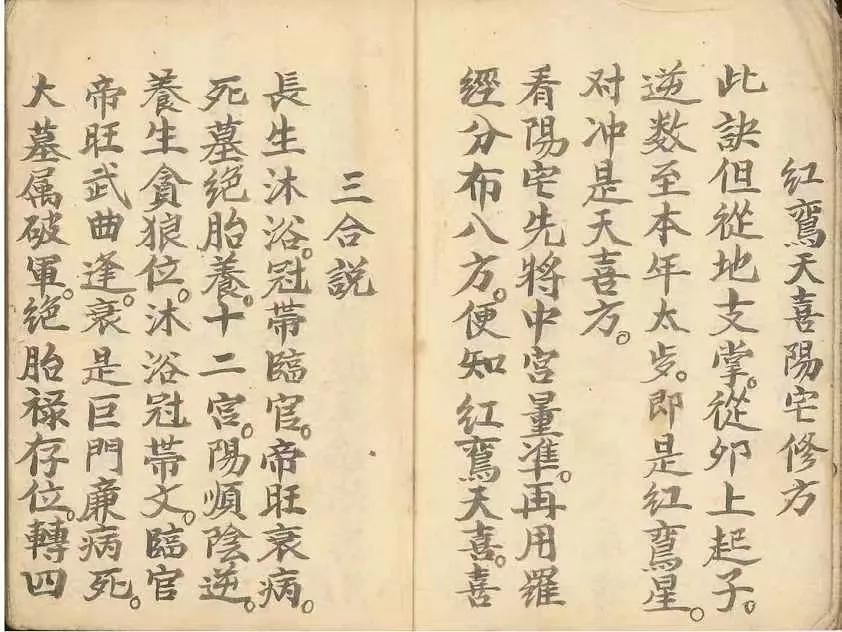 红鸾天喜陽宅修方
此訣但從地支掌。從卯上起子。
逆数至本年太岁。即是红鸾星。
对冲是天喜方。
看陽宅先將中宫量準。再用羅
經分布八方。便知红鸾天喜。喜
三合説
長生沐浴。冠帯臨官。帝旺衰病。
死墓绝胎養。十二宫。陽順陰逆。
養生貪狼位。沐浴冠帯文。臨官
帝旺武曲逢。衰是巨門廉病死。
大墓属破軍。绝胎禄存位。轉四